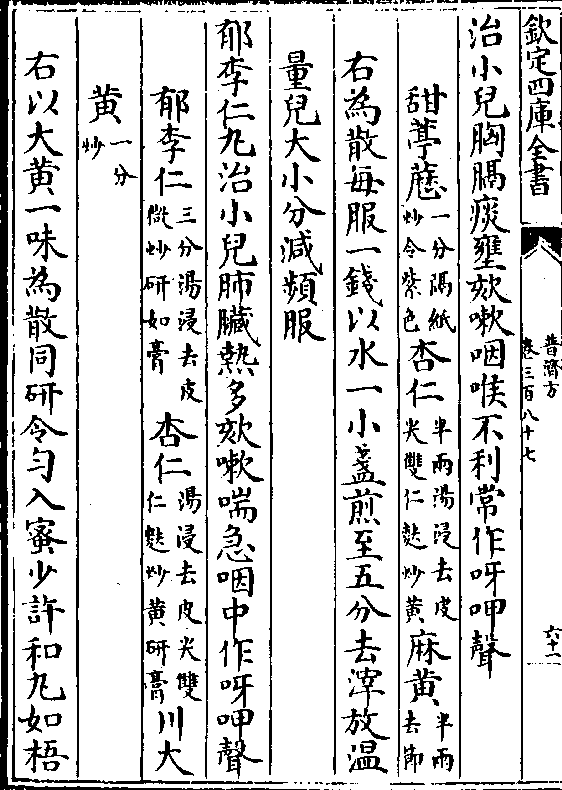 欽定四庫全書
普濟方
卷三百八十七
六十一
治小兒胸膈痰壅欬嗽咽喉不利常作呀呷聲
甜葶藶一分隔紙炒令紫色 杏仁半兩湯浸去皮尖雙仁麩炒黄 麻黄半兩去節
右為散每服一錢以水一小盞煎至五分去滓放温
量兒大小分減頻服
郁李仁丸治小兒肺臟熱多欬嗽喘急咽中作呀呷聲
郁李仁三分湯浸去皮微炒研如膏 杏仁湯浸去皮尖雙仁麩炒黄研膏 川大
黄一分炒
右以大黄一味為散同研令匀入蜜少許和丸如梧